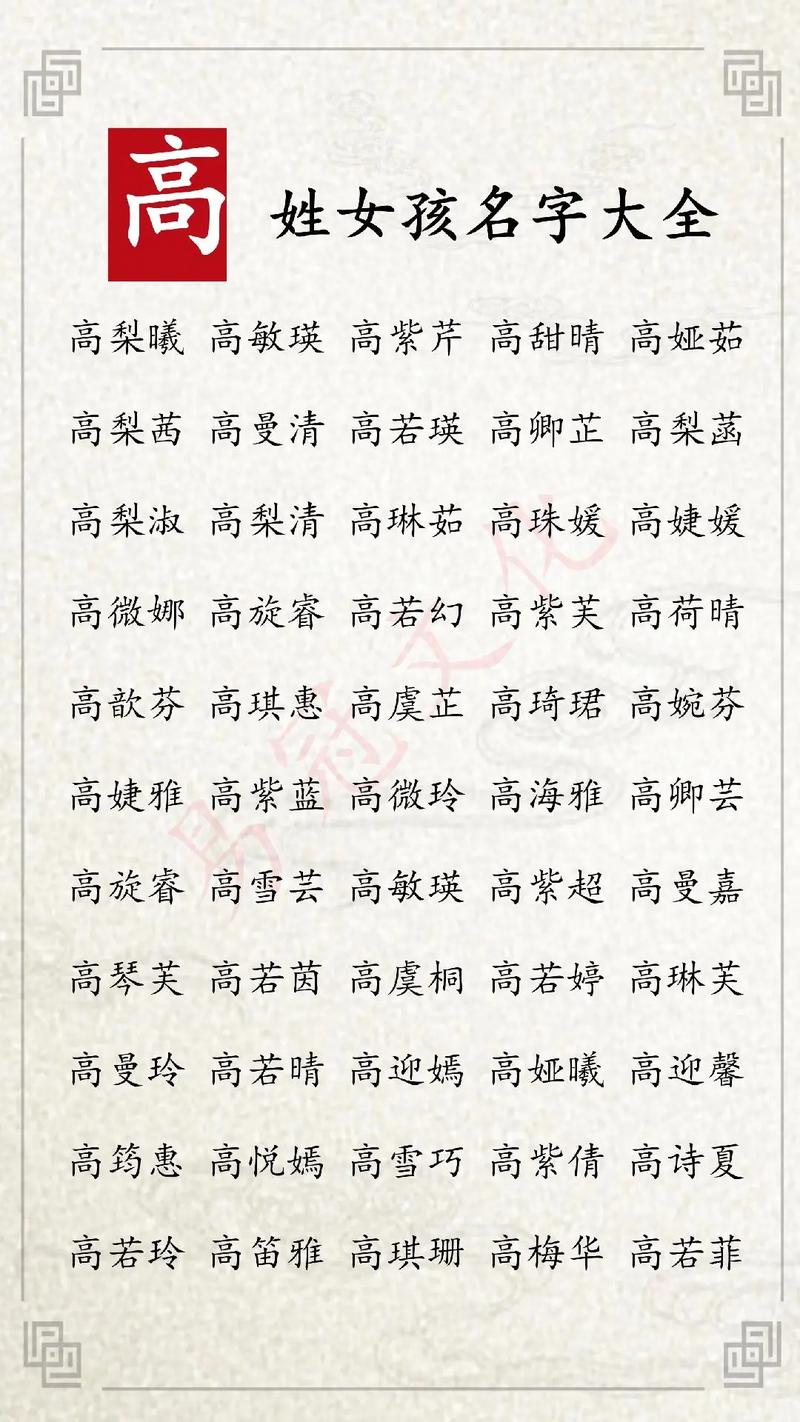 高姓女孩名字大全
高梨曦 高敏瑛 高紫芹 高甜晴 高娅茹
高梨茜 高曼清 高若瑛 高卿芷 高梨菡
高梨淑 高梨清 高琳茹 高珠媛 高婕媛
高微娜 高旋睿 高若幻 高紫芙 高荷晴
高歆芬 高琪惠 高虞芷 高琦珺 高婉芬
高婕雅 高紫蓝 高微玲 高海雅 高卿芸
高旋睿 高雪芸 高敏瑛 高紫超 高曼嘉
高琴芙 高若茵 高虞桐 高若婷 高琳芙
高曼玲 高若晴 高迎嫣 高娅曦 高迎馨
高筠惠 高悦嫣 高雪巧 高紫倩 高诗夏
高若玲 高笛雅 高琪珊 高梅华 高若菲
易冠文化